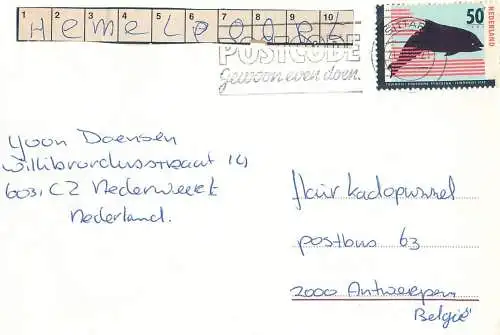 1 2 3 4 5 6 7 8 9 10
Hemel
POSTCODE
Gewoon even doen.
50
NEDERLAND
Yvon Daensen
Willibrordusstraat 14
6031 CZ Nederweert
Nederland.
flair kadopuzzel
postbus 63
2000 Antwerpen
België